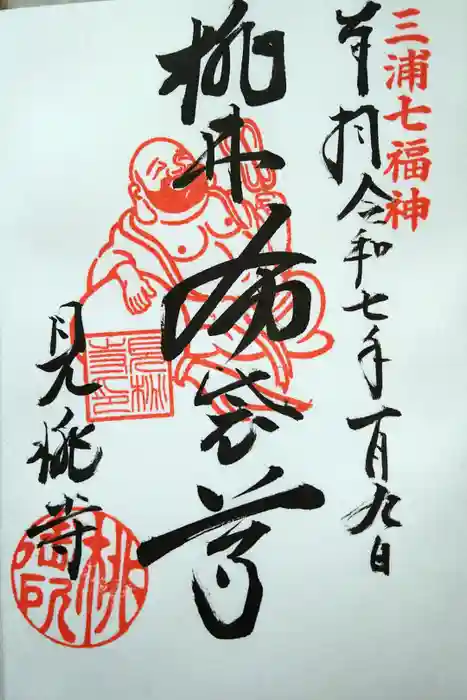 三浦七福神
奉拝 令和七年一月九日
桃林布袋尊
見桃寺